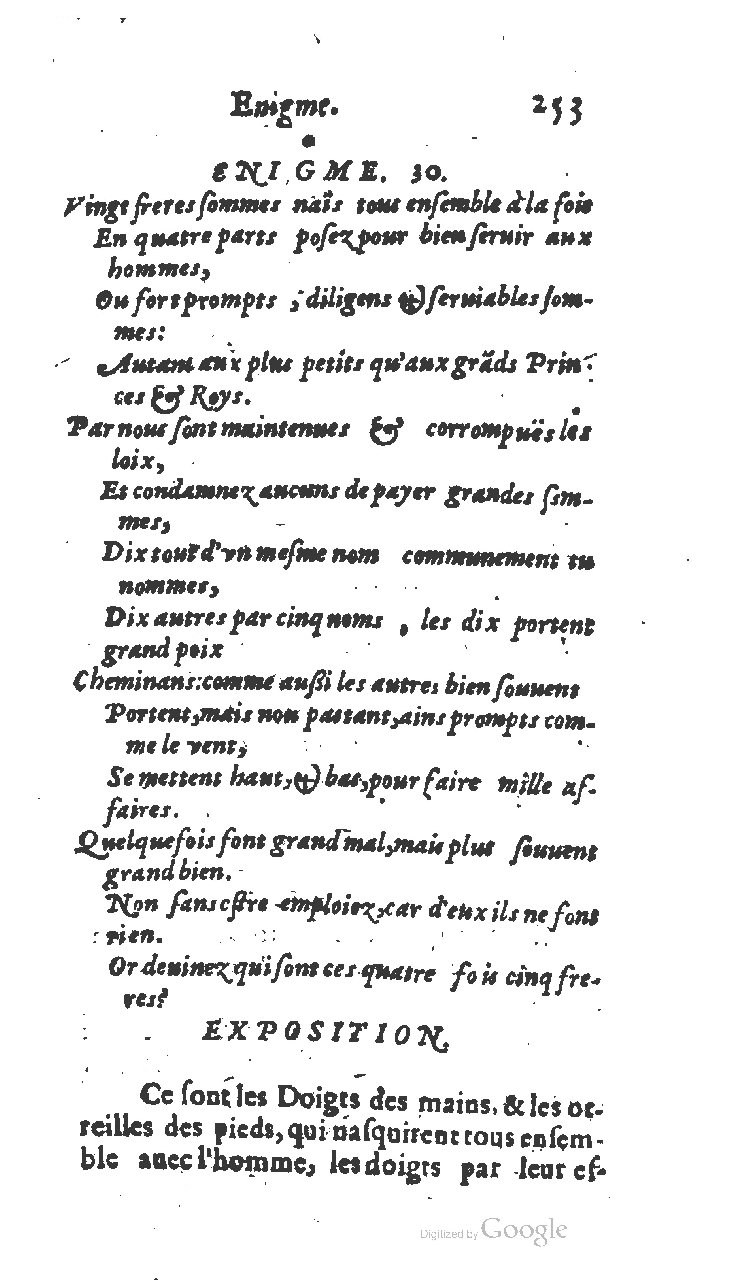 Enigme. 253
ENIGME. 30.
Vingt freres ſommes naïs tous enſemble à la fois
En quatre parts poſez pour bien ſeruir aux
hommes,
Ou fort prompts, diligens & ſeruiables ſom-
mes:
Autant aux plus petits qu'aux grāds Prin-
ces & Roys.
Par nous ſont maintenues & corrompuës les
loix,
Et condamnez aucuns de payer grandes ſom-
mes,
Dix tous d'vn meſme nom communement tu
nommes,
Dix autres par cinq noms, les dix portent
grand poix
Cheminans: comme außi les autres bien ſouuent
Portent, mais non pattant, ains prompts com-
me le vent,
Se mettent haut, & bas, pour faire mille af-
faires.
Quelquefois font grand mal, mais plus ſouuent
grand bien.
Non ſans eſtre emploiez, car d'eux ils ne font
rien.
Or deuinez qui ſont ces quatre fois cinq fre-
res?
EXPOSITION.
Ce ſont les Doigts des mains, & les or-
reilles des pieds, qui naſquirent tous enſem-
ble auec l'homme, les doigts par leur eſ-
Digitized by Google